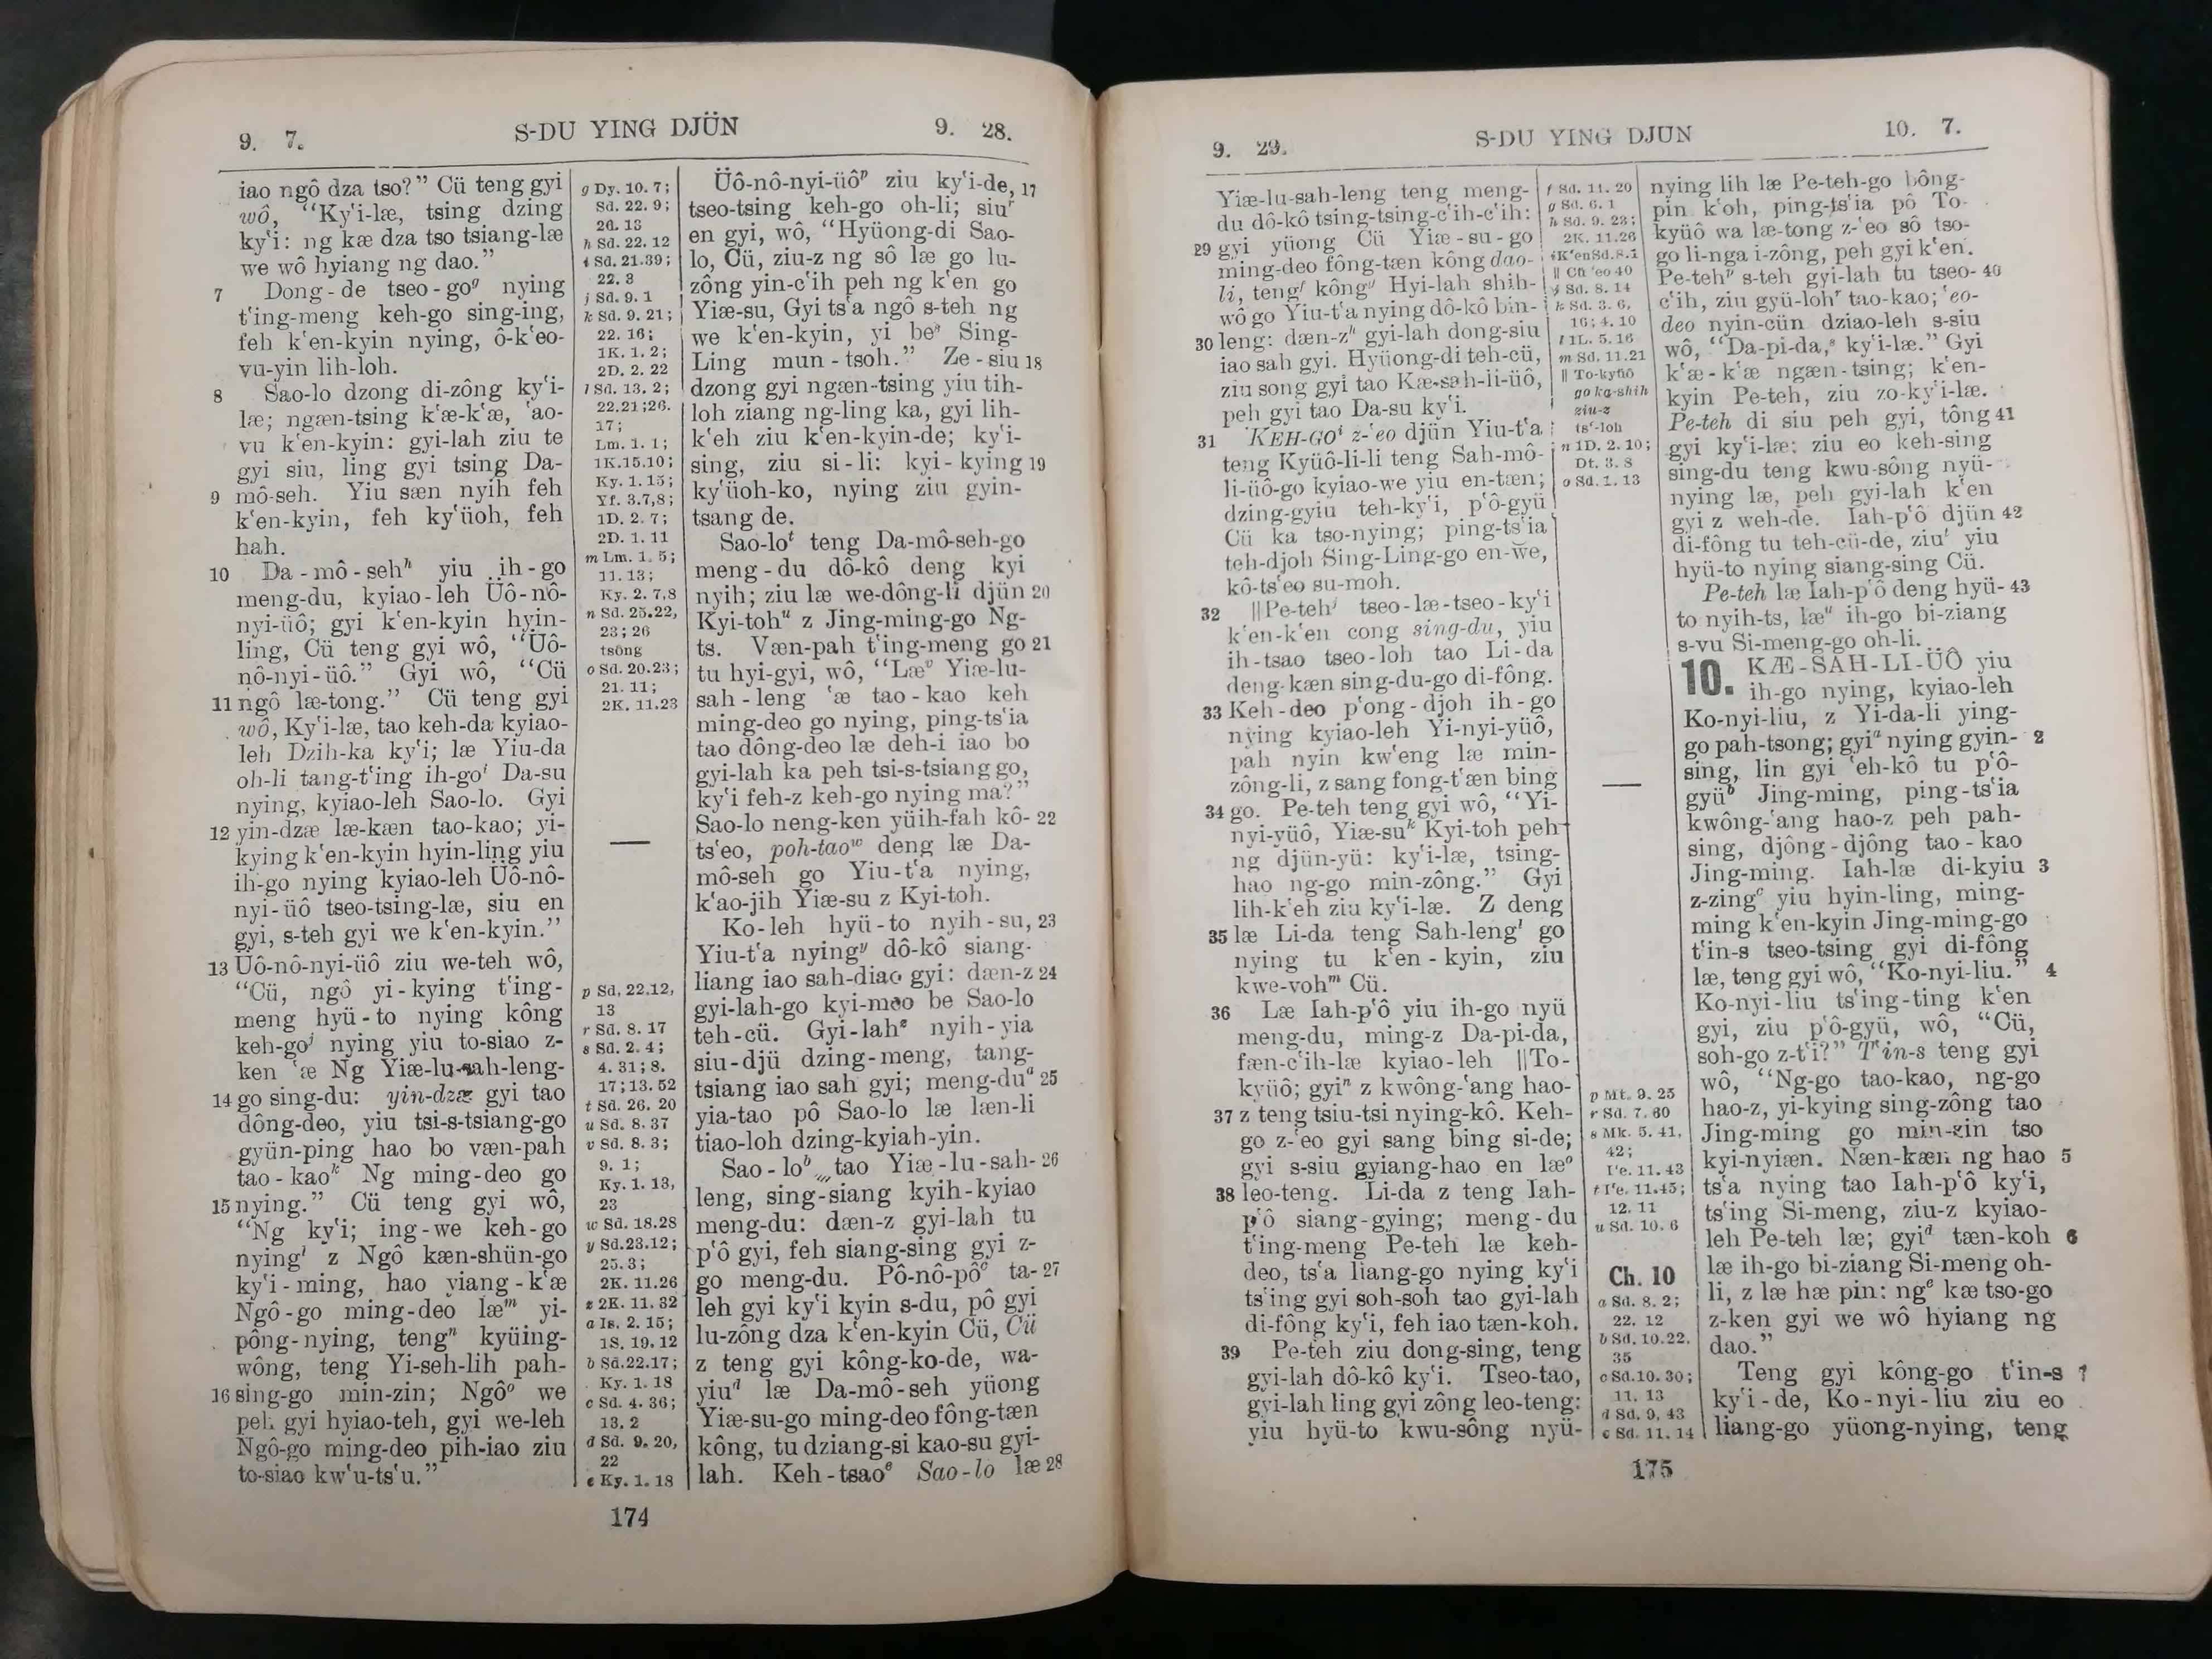 9. 7. S-DU YING DJÜN 9. 28.
iao ngô dza tso?” Cü teng gyi
wô, “Ky‘i-læ, tsing dzing
ky‘i: ng kæ dza tso tsiang-læ
we wô hyiang ng dao.”
7 Dong-de tseo-go g nying
t‘ing-meng keh-go sing-ing,
feh k‘en-kyin nying, ô-k‘eo-
vu-yin lih-loh.
8 Sao-lo dzong di-zông ky‘i-
læ; ngæn-tsing k‘æ-k‘æ, ‘ao-
vu k‘en-kyin: gyi-lah ziu te
gyi siu, ling gyi tsing Da-
9 mô-seh. Yiu sæn nyih feh
k‘en-kyin, feh ky‘üoh, feh
hah.
10 Da-mô-seh h yiu ih-go
meng-du, kyiao-leh Üô-nô-
nyi-üô; gyi k‘en-kyin hyin-
ling, Cü teng gyi wô, “Üô-
nô-nyi-üô.” Gyi wô, “Cü
11 ngô læ-tong.” Cü teng gyi
wô, Ky‘i-læ, tao keh-da kyiao-
leh Dzih-ka ky‘i; læ Yiu-da
oh-li tang-t‘ing ih-go i Da-su
nying, kyiao-leh Sao-lo. Gyi
12 yin-dzæ læ-kæn tao-kao; yi-
kying k‘en-kyin hyin-ling yiu
ih-go nying kyiao-leh Üô-nô-
nyi-üô tseo-tsing-læ, siu en
gyi, s-teh gyi we k‘en-kyin.”
13 Üô-nô-nyi-üô ziu we-teh wô,
“Cü, ngô yi-kying t‘ing-
meng hyü-to nying kông
keh-go j nying yiu to-siao z-
ken ‘æ Ng Yiæ-lu-sah-leng-
14 go sing-du: yin-dzæ gyi tao
dông-deo, yiu tsi-s-tsiang-go
gyün-ping hao bo væn-pah
tao-kao k Ng ming-deo go
15 nying.” Cü teng gyi wô,
“Ng ky‘i; ing-we keh-go
nying l z Ngô kæn-shün-go
ky‘i-ming, hao yiang-k‘æ
Ngô-go ming-deo læ m yi-
pông-nying, teng n kyüing-
wông, teng Yi-seh-lih pah-
16 sing-go min-zin; Ngô o we
peh gyi hyiao-teh, gyi we-leh
Ngô-go ming-deo pih-iao ziu
to-siao kw‘u-ts‘u.”
g Dy. 10. 7;
Sd. 22. 9;
26. 13
h Sd. 22. 12
i Sd. 21.39;
22. 3
j Sd. 9. 1
k Sd. 9. 21;
22. 16;
1K. 1. 2;
2D. 2. 22
l Sd. 13. 2;
22.21;26.
17;
Lm. 1. 1;
1K.15.10;
Ky. 1. 15;
Yf. 3.7,8;
1D. 2. 7;
2D. 1. 11
m Lm. 1. 5;
11. 13;
Ky. 2. 7,8
n Sd. 25.22,
23; 26
tsông
o Sd. 20.23;
21. 11;
2K. 11.23
p Sd. 22.12,
13
r Sd. 8. 17
s Sd. 2. 4;
4. 31; 8.
17; 13. 52
t Sd. 26. 20
u Sd. 8. 37
v Sd. 8. 3;
9. 1;
Ky. 1. 13,
23
w Sd. 18.28
y Sd.23.12;
25. 3;
2K. 11.26
z 2K. 11. 32
a Is. 2. 15;
1S. 19. 12
b Sd.22.17;
Ky. 1. 18
c Sd. 4. 36;
13. 2
d Sd. 9. 20,
22
e Ky. 1. 18
Üô-nô-nyi-üô p ziu ky‘i-de, 17
tseo-tsing keh-go oh-li; siu r
en gyi, wô, “Hyüong-di Sao-
lo, Cü, ziu-z ng sô læ go lu-
zông yin-c‘ih peh ng k‘en go
Yiæ-su, Gyi ts‘a ngô s-teh ng
we k‘en-kyin, yi be s Sing-
Ling mun-tsoh.” Ze-siu 18
dzong gyi ngæn-tsing yiu tih-
loh ziang ng-ling ka, gyi lih-
k‘eh ziu k‘en-kyin-de; ky‘i-
sing, ziu si-li: kyi-kying 19
ky‘üoh-ko, nying ziu gyin-
tsang de.
Sao-lo t teng Da-mô-seh-go
meng-du dô-kô deng kyi
nyih; ziu læ we-dông-li djün 20
Kyi-toh u z Jing-ming-go Ng-
ts. Væn-pah t‘ing-meng go 21
tu hyi-gyi, wô, “Læ v Yiæ-lu-
sah-leng ‘æ tao-kao keh
ming-deo go nying, ping-ts‘ia
tao dông-deo læ deh-i iao bo
gyi-lah ka peh tsi-s-tsiang go,
ky‘i feh-z keh-go nying ma?”
Sao-lo neng-ken yüih-fah kô- 22
ts‘eo, poh-tao w deng læ Da-
mô-seh go Yiu-t‘a nying,
k‘ao-jih Yiæ-su z Kyi-toh.
Ko-leh hyü-to nyih-su, 23
Yiu-t‘a nying y dô-kô siang-
liang iao sah-diao gyi: dæn-z 24
gyi-lah-go kyi-meo be Sao-lo
teh-cü. Gyi-lah z nyih-yia
siu-djü dzing-meng, tang-
tsiang iao sah gyi; meng-du a 25
yia-tao pô Sao-lo læ læn-li
tiao-loh dzing-kyiah-yin.
Sao-lo b tao Yiæ-lu-sah- 26
leng, sing-siang kyih-kyiao
meng-du: dæn-z gyi-lah tu
p‘ô gyi, feh siang-sing gyi z-
go meng-du. Pô-nô-pô c ta- 27
leh gyi ky‘i kyin s-du, pô gyi
lu-zông dza k‘en-kyin Cü, Cü
z teng gyi kông-ko-de, wa-
yiu d læ Da-mô-seh yüong
Yiæ-su-go ming-deo fông-tæn
kông, tu dziang-si kao-su gyi-
lah. Keh-tsao e Sao-lo læ 28
174
9. 29. S-DU YING DJÜN 10. 7.
Yiæ-lu-sah-leng teng meng-
du dô-kô tsing-tsing-c‘ih-c‘ih:
29 gyi yüong Cü Yiæ-su-go
ming-deo fông-tæn kông dao-
li, teng f kông g Hyi-lah shih-
wô go Yiu-t‘a nying dô-kô bin-
30 leng: dæn-z h gyi-lah dong-siu
iao sah gyi. Hyüong-di teh-cü,
ziu song gyi tao Kæ-sah-li-üô,
peh gyi tao Da-su ky‘i.
31 KEH-GO i z-‘eo djün Yiu-t‘a
teng Kyüô-li-li teng Sah-mô-
li-üô-go kyiao-we yiu en-tæn;
dzing-gyiu teh-ky‘i, p‘ô-gyü
Cü ka tso-nying; ping-ts‘ia
teh-djoh Sing-Ling-go en-we,
kô-ts‘eo su-moh.
32 ‖Pe-teh j tseo-læ-tseo-ky‘i
k‘en-k‘en cong sing-du, yiu
ih-tsao tseo-loh tao Li-da
deng-kæn sing-du-go di-fông.
33 Keh-deo p‘ong-djoh ih-go
nying kyiao-leh Yi-nyi-yüô,
pah nyin kw‘eng læ min-
zông-li, z sang fong-t‘æn bing
34 go. Pe-teh teng gyi wô, “Yi-
nyi-yüô, Yiæ-su k Kyi-toh peh
ng djün-yü: ky‘i-læ, tsing-
hao ng-go min-zông.” Gyi
lih-k‘eh ziu ky‘i-læ. Z deng
35 læ Li-da teng Sah-leng l go
nying tu k‘en-kyin, ziu
kwe-voh m Cü.
36 Læ Iah-p‘ô yiu ih-go nyü
meng-du, ming-z Da-pi-da,
fæn-c‘ih-læ kyiao-leh ‖To-
kyüô; gyi n z kwông-‘ang hao-
37 z teng tsiu-tsi nying-kô. Keh-
go z-‘eo gyi sang bing si-de;
gyi s-siu gyiang-hao en læ o
38 leo-teng. Li-da z teng Iah-
p‘ô siang-gying; meng-du
t‘ing-meng Pe-teh læ keh-
deo, ts‘a liang-go nying ky‘i
ts‘ing gyi soh-soh tao gyi-lah
di-fông ky‘i, feh iao tæn-koh.
39 Pe-teh ziu dong-sing, teng
gyi-lah dô-kô ky‘i. Tseo-tao,
gyi-lah ling gyi zông leo-teng:
yiu hyü-to kwu-sông nyü-
f Sd. 11. 20
g Sd. 6. 1
h Sd. 9. 23;
2K. 11.26
i K‘en Sd.8.1
‖ Cü ‘eo 40
j Sd. 8. 14
k Sd. 3. 6,
16; 4. 10
l 1L. 5. 16
m Sd. 11.21
‖ To-kyüô
go ka-shih
ziu-z
ts‘-loh
n 1D. 2. 10;
Dt. 3. 8
o Sd. 1. 13
p Mt. 9. 25
r Sd. 7. 60
s Mk. 5. 41,
42;
I‘e. 11. 43
t I‘e. 11.45;
12. 11
u Sd. 10. 6
Ch. 10
a Sd. 8. 2;
22. 12
b Sd. 10.22.
35
c Sd.10. 30;
11. 13
d Sd. 9. 43
e Sd. 11. 14
nying lih læ Pe-teh-go bông-
pin k‘oh, ping-ts‘ia pô To-
kyüô wa læ-tong z-‘eo sô tso-
go li-nga i-zông, peh gyi k‘en.
Pe-teh p s-teh gyi-lah tu tseo- 40
c‘ih, ziu gyü-loh r tao-kao; ‘eo-
deo nyin-cün dziao-leh s-siu
wô, “Da-pi-da, s ky‘i-læ.” Gyi
k‘æ-k‘æ ngæn-tsing; k‘en-
kyin Pe-teh, ziu zo-ky‘i-læ.
Pe-teh di siu peh gyi, tông 41
gyi ky‘i-læ: ziu eo keh-sing
sing-du teng kwu-sông nyü-
nying læ, peh gyi-lah k‘en
gyi z weh-de. Iah-p‘ô djün 42
di-fông tu teh-cü-de, ziu t yiu
hyü-to nying siang-sing Cü.
Pe-teh læ Iah-p‘ô deng hyü- 43
to nyih-ts, læ u ih-go bi-ziang
s-vu Si-meng-go oh-li.
10. KÆ-SAH-LI-ÜÔ yiu
ih-go nying, kyiao-leh
Ko-nyi-liu, z Yi-da-li ying-
go pah-tsong; gyi a nying gyin- 2
sing, lin gyi ‘eh-kô tu p‘ô-
gyü b Jing-ming, ping-ts‘ia
kwông-‘ang hao-z peh pah-
sing, djông-djông tao-kao
Jing-ming. Iah-læ di-kyiu 3
z-zing c yiu hyin-ling, ming-
ming k‘en-kyin Jing-ming-go
t‘in-s tseo-tsing gyi di-fông
læ, teng gyi wô, “Ko-nyi-liu.” 4
Ko-nyi-liu ts‘ing-ting k‘en
gyi, ziu p‘ô-gyü, wô, “Cü,
soh-go z-t‘i?” T‘in-s teng gyi
wô, “Ng-go tao-kao, ng-go
hao-z, yi-kying sing-zông tao
Jing-ming go min-zin tso
kyi-nyiæn. Næn-kæn ng hao 5
ts‘a nying tao Iah-p‘ô ky‘i,
ts‘ing Si-meng, ziu-z kyiao-
leh Pe-teh læ; gyi d tæn-koh 6
læ ih-go bi-ziang Si-meng oh-
li, z læ hæ pin: ng e kæ tso-go
z-ken gyi we wô hyiang ng
dao.”
Teng gyi kông-go t‘in-s 7
ky‘i-de, Ko-nyi-liu ziu eo
liang-go yüong-nying, teng
175